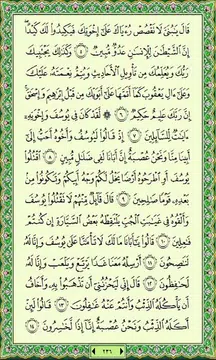 قَالَ يَٰبُنَيَّ لَا تَقْصُصْ رُءْيَاكَ عَلَىٰٓ إِخْوَتِكَ فَيَكِيدُوا۟ لَكَ كَيْدًا
إِنَّ ٱلشَّيْطَٰنَ لِلْإِنسَٰنِ عَدُوٌّ مُّبِينٌ ٥ وَكَذَٰلِكَ يَجْتَبِيكَ
رَبُّكَ وَيُعَلِّمُكَ مِن تَأْوِيلِ ٱلْأَحَادِيثِ وَيُتِمُّ نِعْمَتَهُۥ عَلَيْكَ
وَعَلَىٰٓ ءَالِ يَعْقُوبَ كَمَآ أَتَمَّهَا عَلَىٰٓ أَبَوَيْكَ مِن قَبْلُ إِبْرَٰهِيمَ وَإِسْحَٰقَ
إِنَّ رَبَّكَ عَلِيمٌ حَكِيمٌ ٦ ۞ لَّقَدْ كَانَ فِى يُوسُفَ وَإِخْوَتِهِۦٓ
ءَايَٰتٌ لِّلسَّآئِلِينَ ٧ إِذْ قَالُوا۟ لَيُوسُفُ وَأَخُوهُ أَحَبُّ إِلَىٰٓ
أَبِينَا مِنَّا وَنَحْنُ عُصْبَةٌ إِنَّ أَبَانَا لَفِى ضَلَٰلٍ مُّبِينٍ ٨ ٱقْتُلُوا۟
يُوسُفَ أَوِ ٱطْرَحُوهُ أَرْضًا يَخْلُ لَكُمْ وَجْهُ أَبِيكُمْ وَتَكُونُوا۟ مِنۢ
بَعْدِهِۦ قَوْمًا صَٰلِحِينَ ٩ قَالَ قَآئِلٌ مِّنْهُمْ لَا تَقْتُلُوا۟ يُوسُفَ
وَأَلْقُوهُ فِى غَيَٰبَتِ ٱلْجُبِّ يَلْتَقِطْهُ بَعْضُ ٱلسَّيَّارَةِ إِن كُنتُمْ
فَٰعِلِينَ ١٠ قَالُوا۟ يَٰٓأَبَانَا مَا لَكَ لَا تَأْمَ۫نَّا عَلَىٰ يُوسُفَ وَإِنَّا لَهُۥ
لَنَٰصِحُونَ ١١ أَرْسِلْهُ مَعَنَا غَدًا يَرْتَعْ وَيَلْعَبْ وَإِنَّا لَهُۥ
لَحَٰفِظُونَ ١٢ قَالَ إِنِّى لَيَحْزُنُنِىٓ أَن تَذْهَبُوا۟ بِهِۦ وَأَخَافُ
أَن يَأْكُلَهُ ٱلذِّئْبُ وَأَنتُمْ عَنْهُ غَٰفِلُونَ ١٣ قَالُوا۟ لَئِنْ
أَكَلَهُ ٱلذِّئْبُ وَنَحْنُ عُصْبَةٌ إِنَّآ إِذًا لَّخَٰسِرُونَ ١٤
٢٣٦